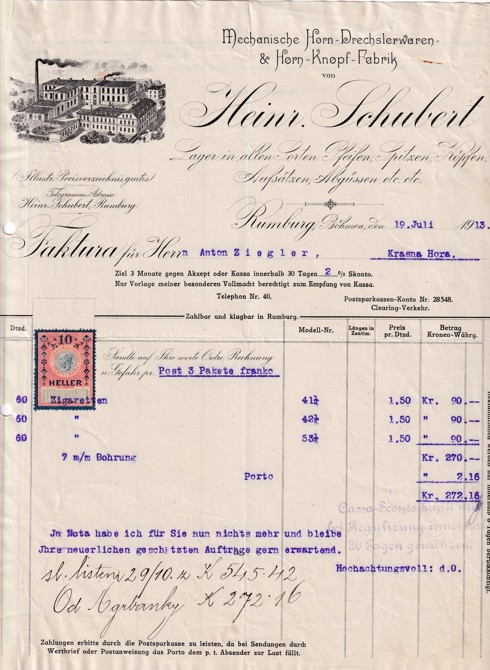 Mechanische Horn-Drechslerwaren-
& Horn-Knopf-Fabrik
von
Heinr. Schubert
Lager in allen Sorten Pfeifen, Spitzen, Köpfen,
Aufsätzen, Abgüssen etc. etc.
Illustr. Preisverzeichnis gratis!
Telegramm-Adresse
Heinr. Schubert, Rumburg.
Rumburg Böhmen, den 19. Juli 1913.
Faktura für Herrn Anton Ziegler, Krasna Hora.
Ziel 3 Monate gegen Akzept oder Kassa innerhalb 30 Tagen 2 % Skonto.
Nur Vorlage meiner besonderen Vollmacht berechtigt zum Empfang von Kassa.
Telephon Nr. 40.
Postsparkassen-Konto Nr. 28548.
Clearing-Verkehr.
Zahlbar und klagbar in Rumburg.
Dtzd. Modell-Nr. Längen in Zentim. Preis pr. Dtzd. Betrag Kronen-Währg.
10
HELLER
Sandte auf Ihre werte Ordre, Rechnung
u. Gefahr pr. Post 3 Pakete franko
60 Zigaretten 41¾ 1.50 Kr. 90.—
60 " 42¾ 1.50 " 90.—
60 " 53¾ 1.50 " 90.—
7 m/m Bohrung Kr. 270.—
Porto " 2.16
Kr. 272.16
Cassa-Sconto kann nur
bei Regulirung innerhalb
30 Tagen gewähren.
Jn Nota habe ich für Sie nun nichts mehr und bleibe
Jhre neuerlichen geschätzten Aufträge gern erwartend.
Hochachtungsvoll: d.O.
29/10. z K 545.42
Od K 272.16
Zahlungen erbitte durch die Postsparkasse zu leisten, da bei Sendungen durch
Wertbrief oder Postanweisung das Porto dem p. t. Absender zur Last fällt.